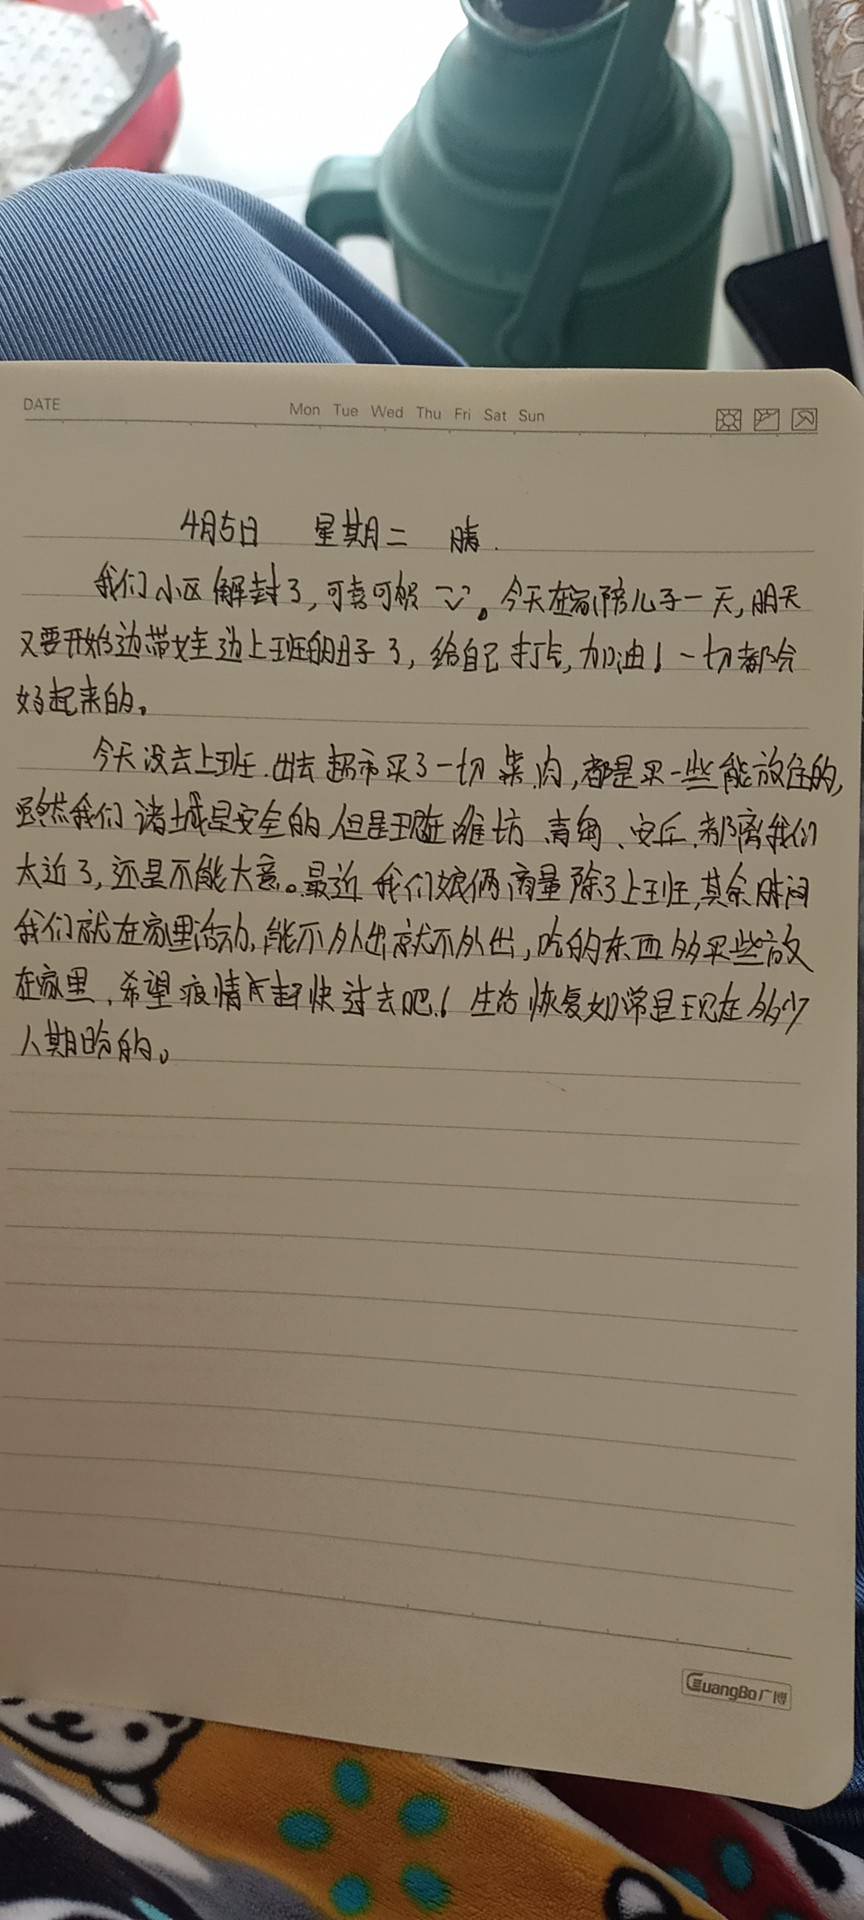 DATE
Mon Tue Wed Thu Fri Sat Sun
4月5日 星期二 晴.
我们小区解封了,可喜可贺。今天在家陪儿子一天,明天
又要开始边带娃边上班的日子了,给自己打气,加油!一切都会
好起来的。
今天没去上班.出去超市买了一切菜,肉,都是买一些能放住的,
虽然我们诸城是安全的但是现在潍坊 青岛、安丘.都离我们
太近了,还是不能大意。最近 我们娘俩商量除了上班,其余时间
我们就在家里活动,能不外出就不外出,吃的东西多买些放
在家里,希望疫情赶快过去吧!生活恢复如常是现在多少
人期盼的。
GuangBo广博